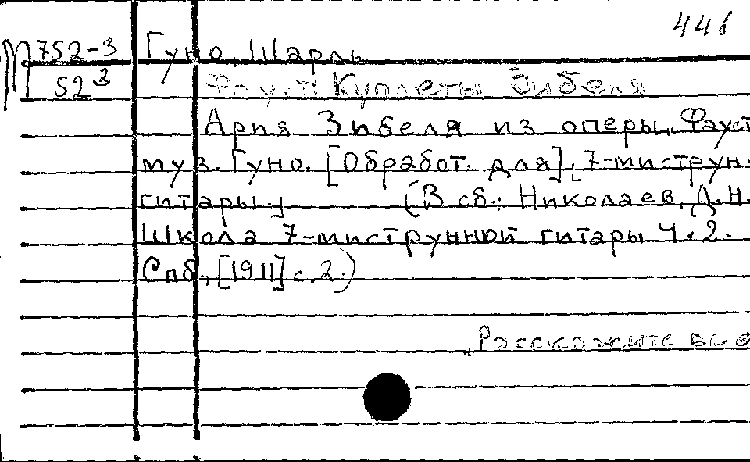 441
М 752-3 Гуно, Шарль
52³ Фауст: Куплеты Зибеля
Ария Зибеля из оперы Фауст
муз. Гуно. [Обработ. для] 7-миструн.
гитары. (В сб.: Николаев, Д.Н.
Школа 7-миструнной гитары Ч.2.
Спб., [1911] с.2.)
„Расскажите вы е